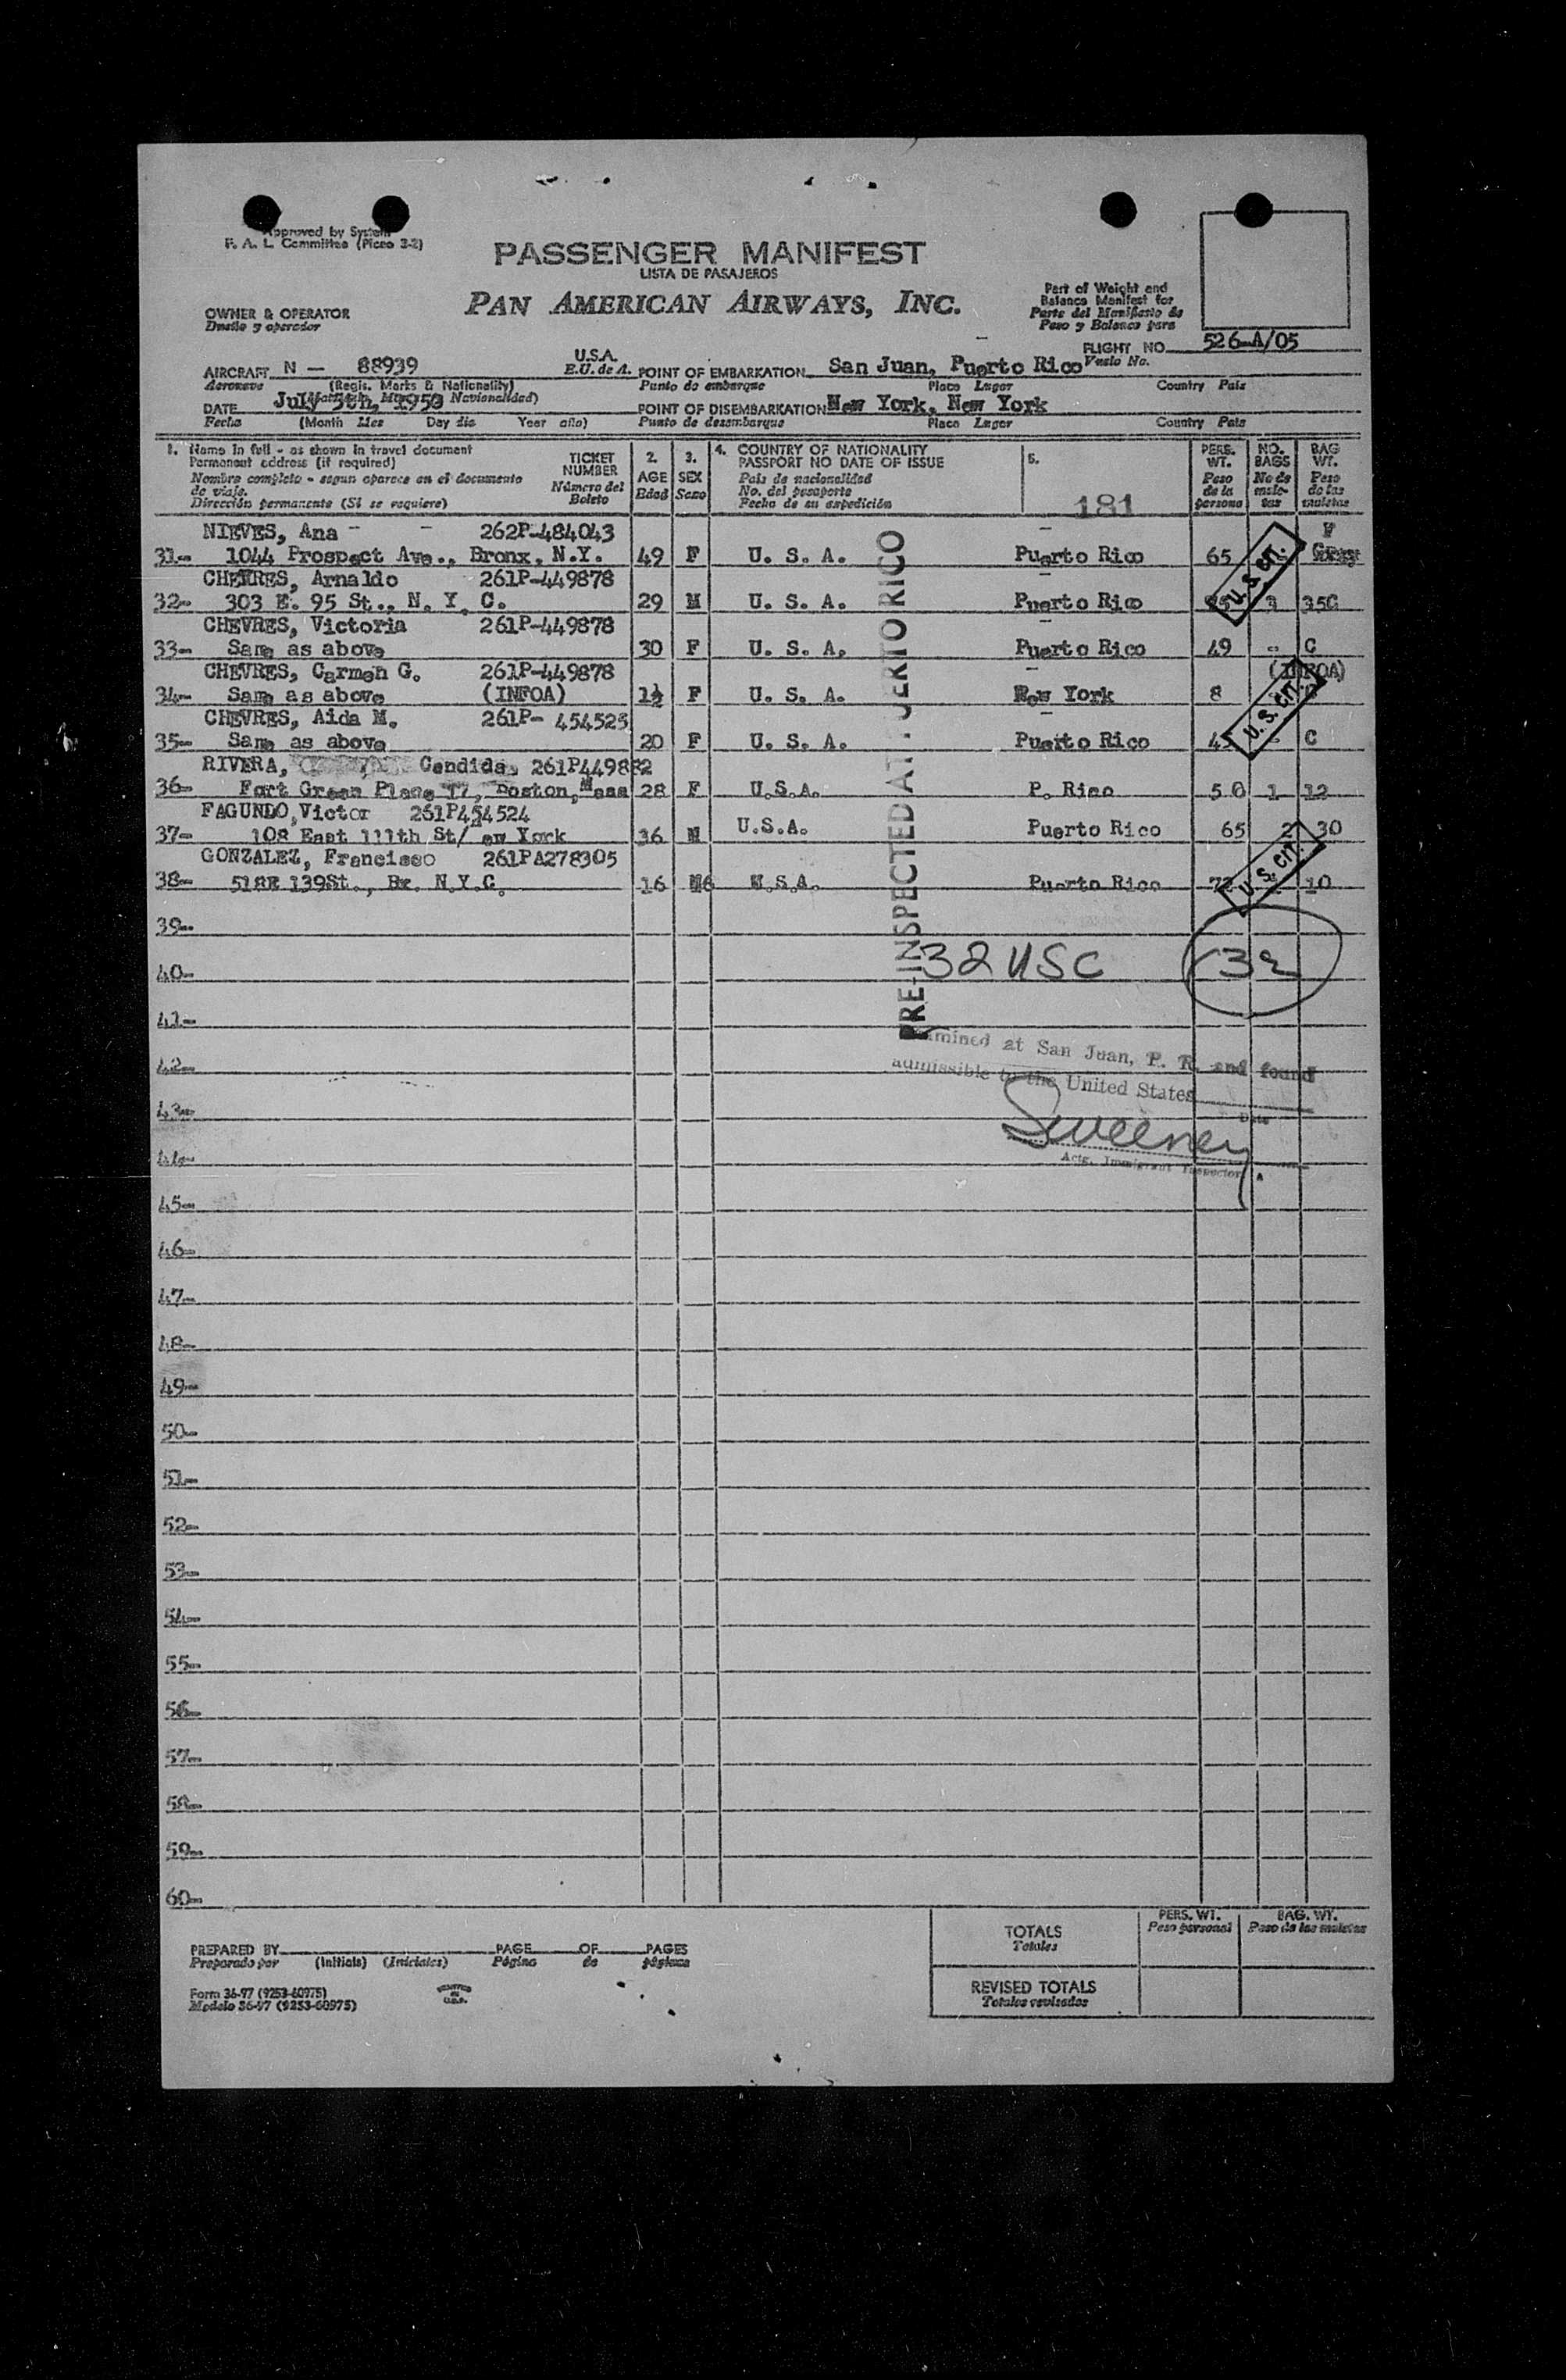 Approved by System
F. A. L. Committee (Picao 3-2)
PASSENGER MANIFEST
LISTA DE PASAJEROS
PAN AMERICAN AIRWAYS, INC.
OWNER & OPERATOR
Dueño y operador
Part of Weight and
Balance Manifest for
Parte del Manifiesto de
Peso y Balance para
FLIGHT NO. 526-A/05
Vuelo No.
AIRCRAFT N - 88939 U.S.A. POINT OF EMBARKATION San Juan, Puerto Rico
Aeronave (Regis. Marks & Nationality) E.U. de A. Punto de embarque Place Lugar Country Pais
DATE July 5th, 1950 POINT OF DISEMBARKATION New York, New York
Fecha (Month Mes Day dia Year año) Punto de desembarque Place Lugar Country Pais
1. Name in full - as shown in travel document
Permanent address (if required)
Nombre completo - segun aparece en el documento
de viaje.
Dirección permanente (Si se requiere)
TICKET
NUMBER
Número del
Boleto
2.
AGE
Edad
3.
SEX
Sexo
4. COUNTRY OF NATIONALITY
PASSPORT NO DATE OF ISSUE
Pais de nacionalidad
No. del pasaporte
Fecha de su expedición
5.
181
PERS.
WT.
Peso
de la
persona
NO.
BAGS
No de
male-
tas
BAG
WT.
Peso
de las
maletas
NIEVES, Ana - - 262P-484043
31- 1044 Prospect Ave., Bronx, N.Y. 49 F U. S. A. Puerto Rico 65
CHEVRES, Arnaldo 261P-449878
32- 303 E. 95 St., N. Y. C. 29 M U. S. A. Puerto Rico 3 35C
CHEVRES, Victoria 261P-449878
33- Same as above 30 F U. S. A. Puerto Rico 49 - C
CHEVRES, Carmen G. 261P-449878 (INFOA)
34- Same as above (INFOA) 1½ F U. S. A. New York 8
CHEVRES, Aida M. 261P- 454525
35- Same as above 20 F U. S. A. Puerto Rico C
RIVERA, Candida, 261P449882
36- Fort Green Place 17, Boston, Mass 28 F U.S.A. P. Rico 50 1 12
FAGUNDO, Victor 261P454524
37- 108 East 111th St/ ew York 36 M U.S.A. Puerto Rico 65 2 30
GONZALEZ, Francisco 261PA278305
38- 518E 139St., Bx. N.Y.C. 16 M6 U.S.A. Puerto Rico 10
U.S. CIT.
U.S. CIT.
U.S. CIT.
PRE-INSPECTED AT
PUERTO RICO
39-
40- 32 USC 32
41-
Examined at San Juan, P. R. and found
42-
admissible to the United States
43-
Date
Sweeney
44-
Actg. Immigrant Inspector
45-
46-
47-
48-
49-
50-
51-
52-
53-
54-
55-
56-
57-
58-
59-
60-
TOTALS
Totales
PERS. WT.
Peso personal
BAG. WT.
Peso de las maletas
REVISED TOTALS
Totales revisados
PREPARED BY PAGE OF PAGES
Preparado por (Initials) (Iniciales) Página de páginas
Form 36-97 (9253-60975)
Modelo 36-97 (9253-60975)
PRINTED
IN
U.S.A.